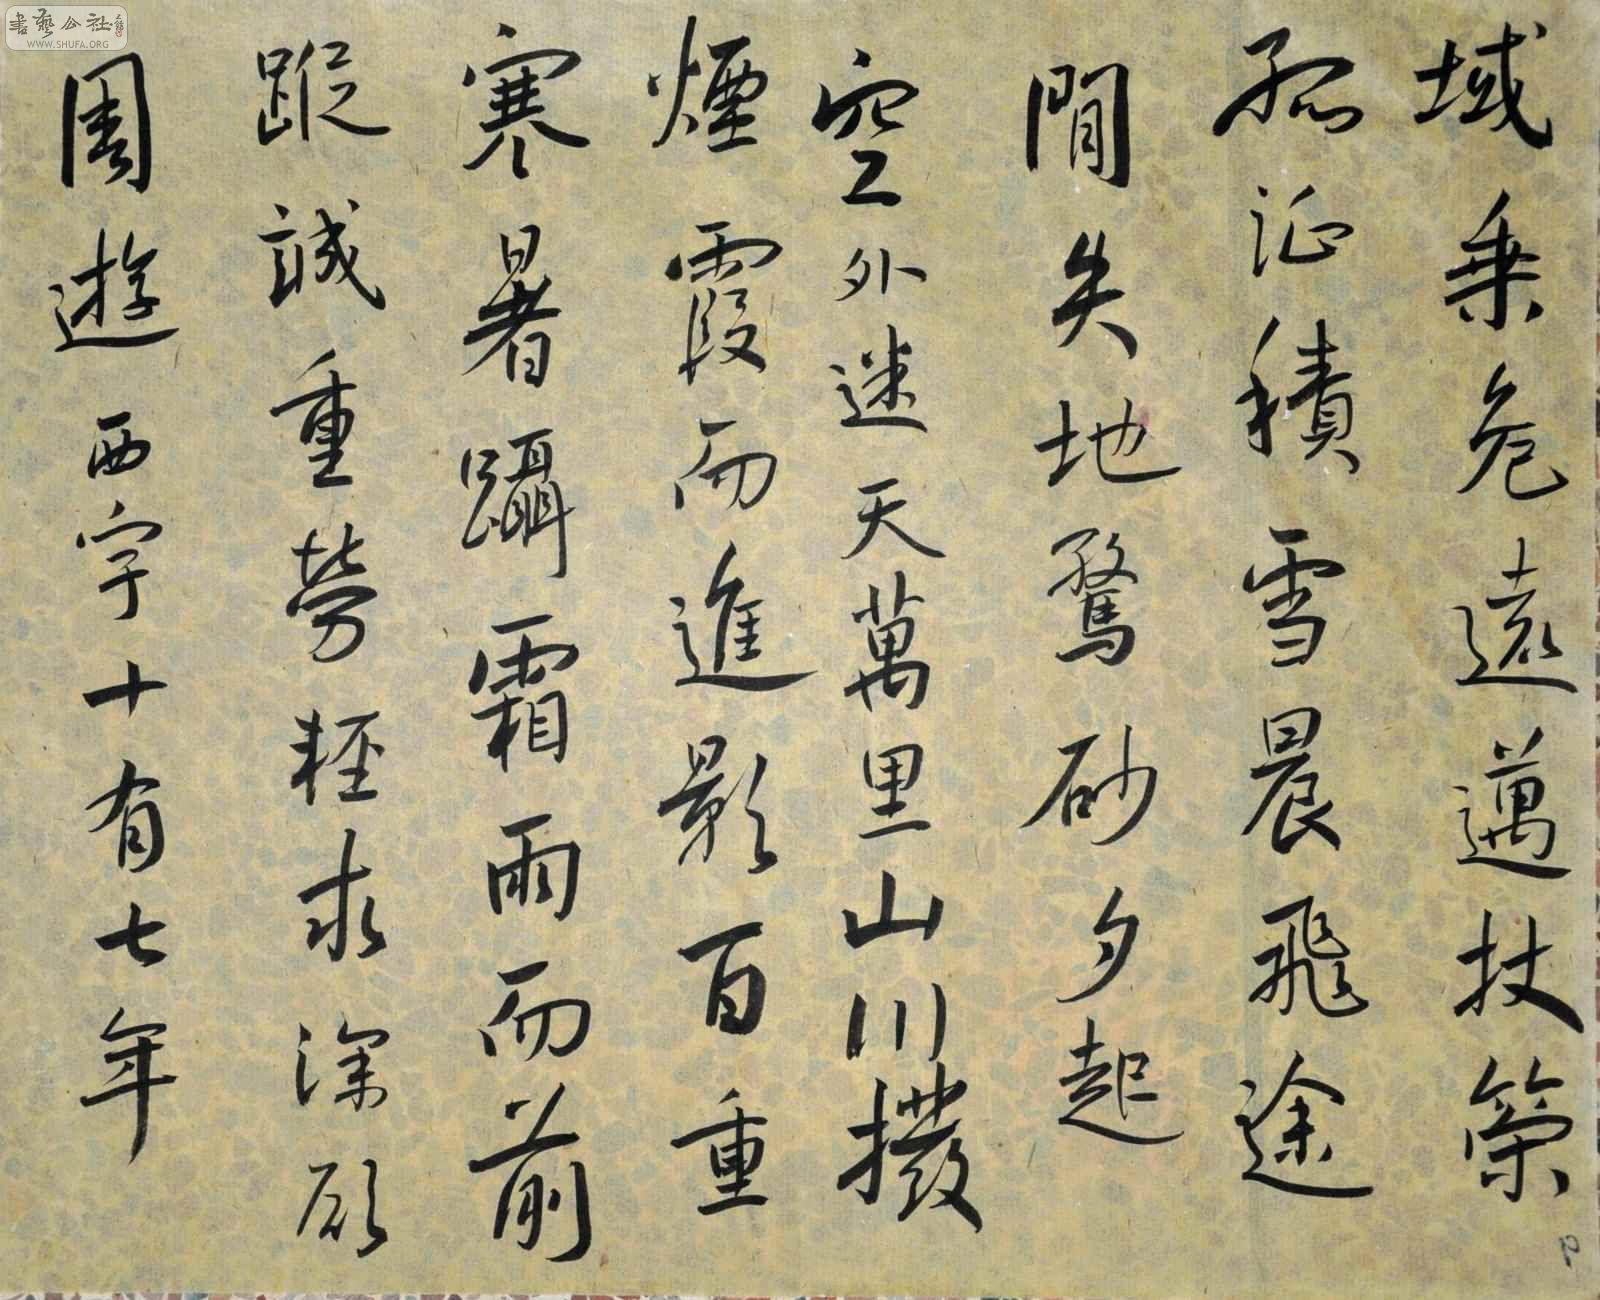 域乗危遠邁杖策
孤征積雪晨飛途
間失地驚砂夕起
空外迷天萬里山川撥
煙霞而進影百重
寒暑躡霜雨而前
蹤誠重勞輕求深願
周遊西宇十有七年
書藝公社
WWW.SHUFA.ORG